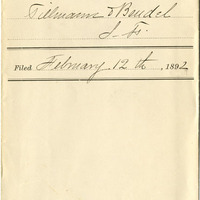 Tillmann & Bendel
S. F.
Filed February 12th, 1892